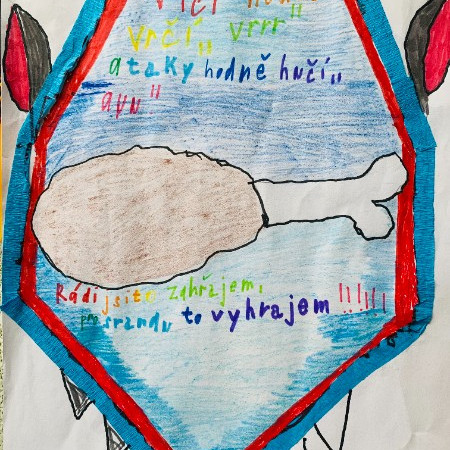 vlčí
vrčí,, vrrr"
ataky hodně hučí,,
avu"
Rádi jsite zahřajem,
pro srandu to vyhrajem !!!!!!